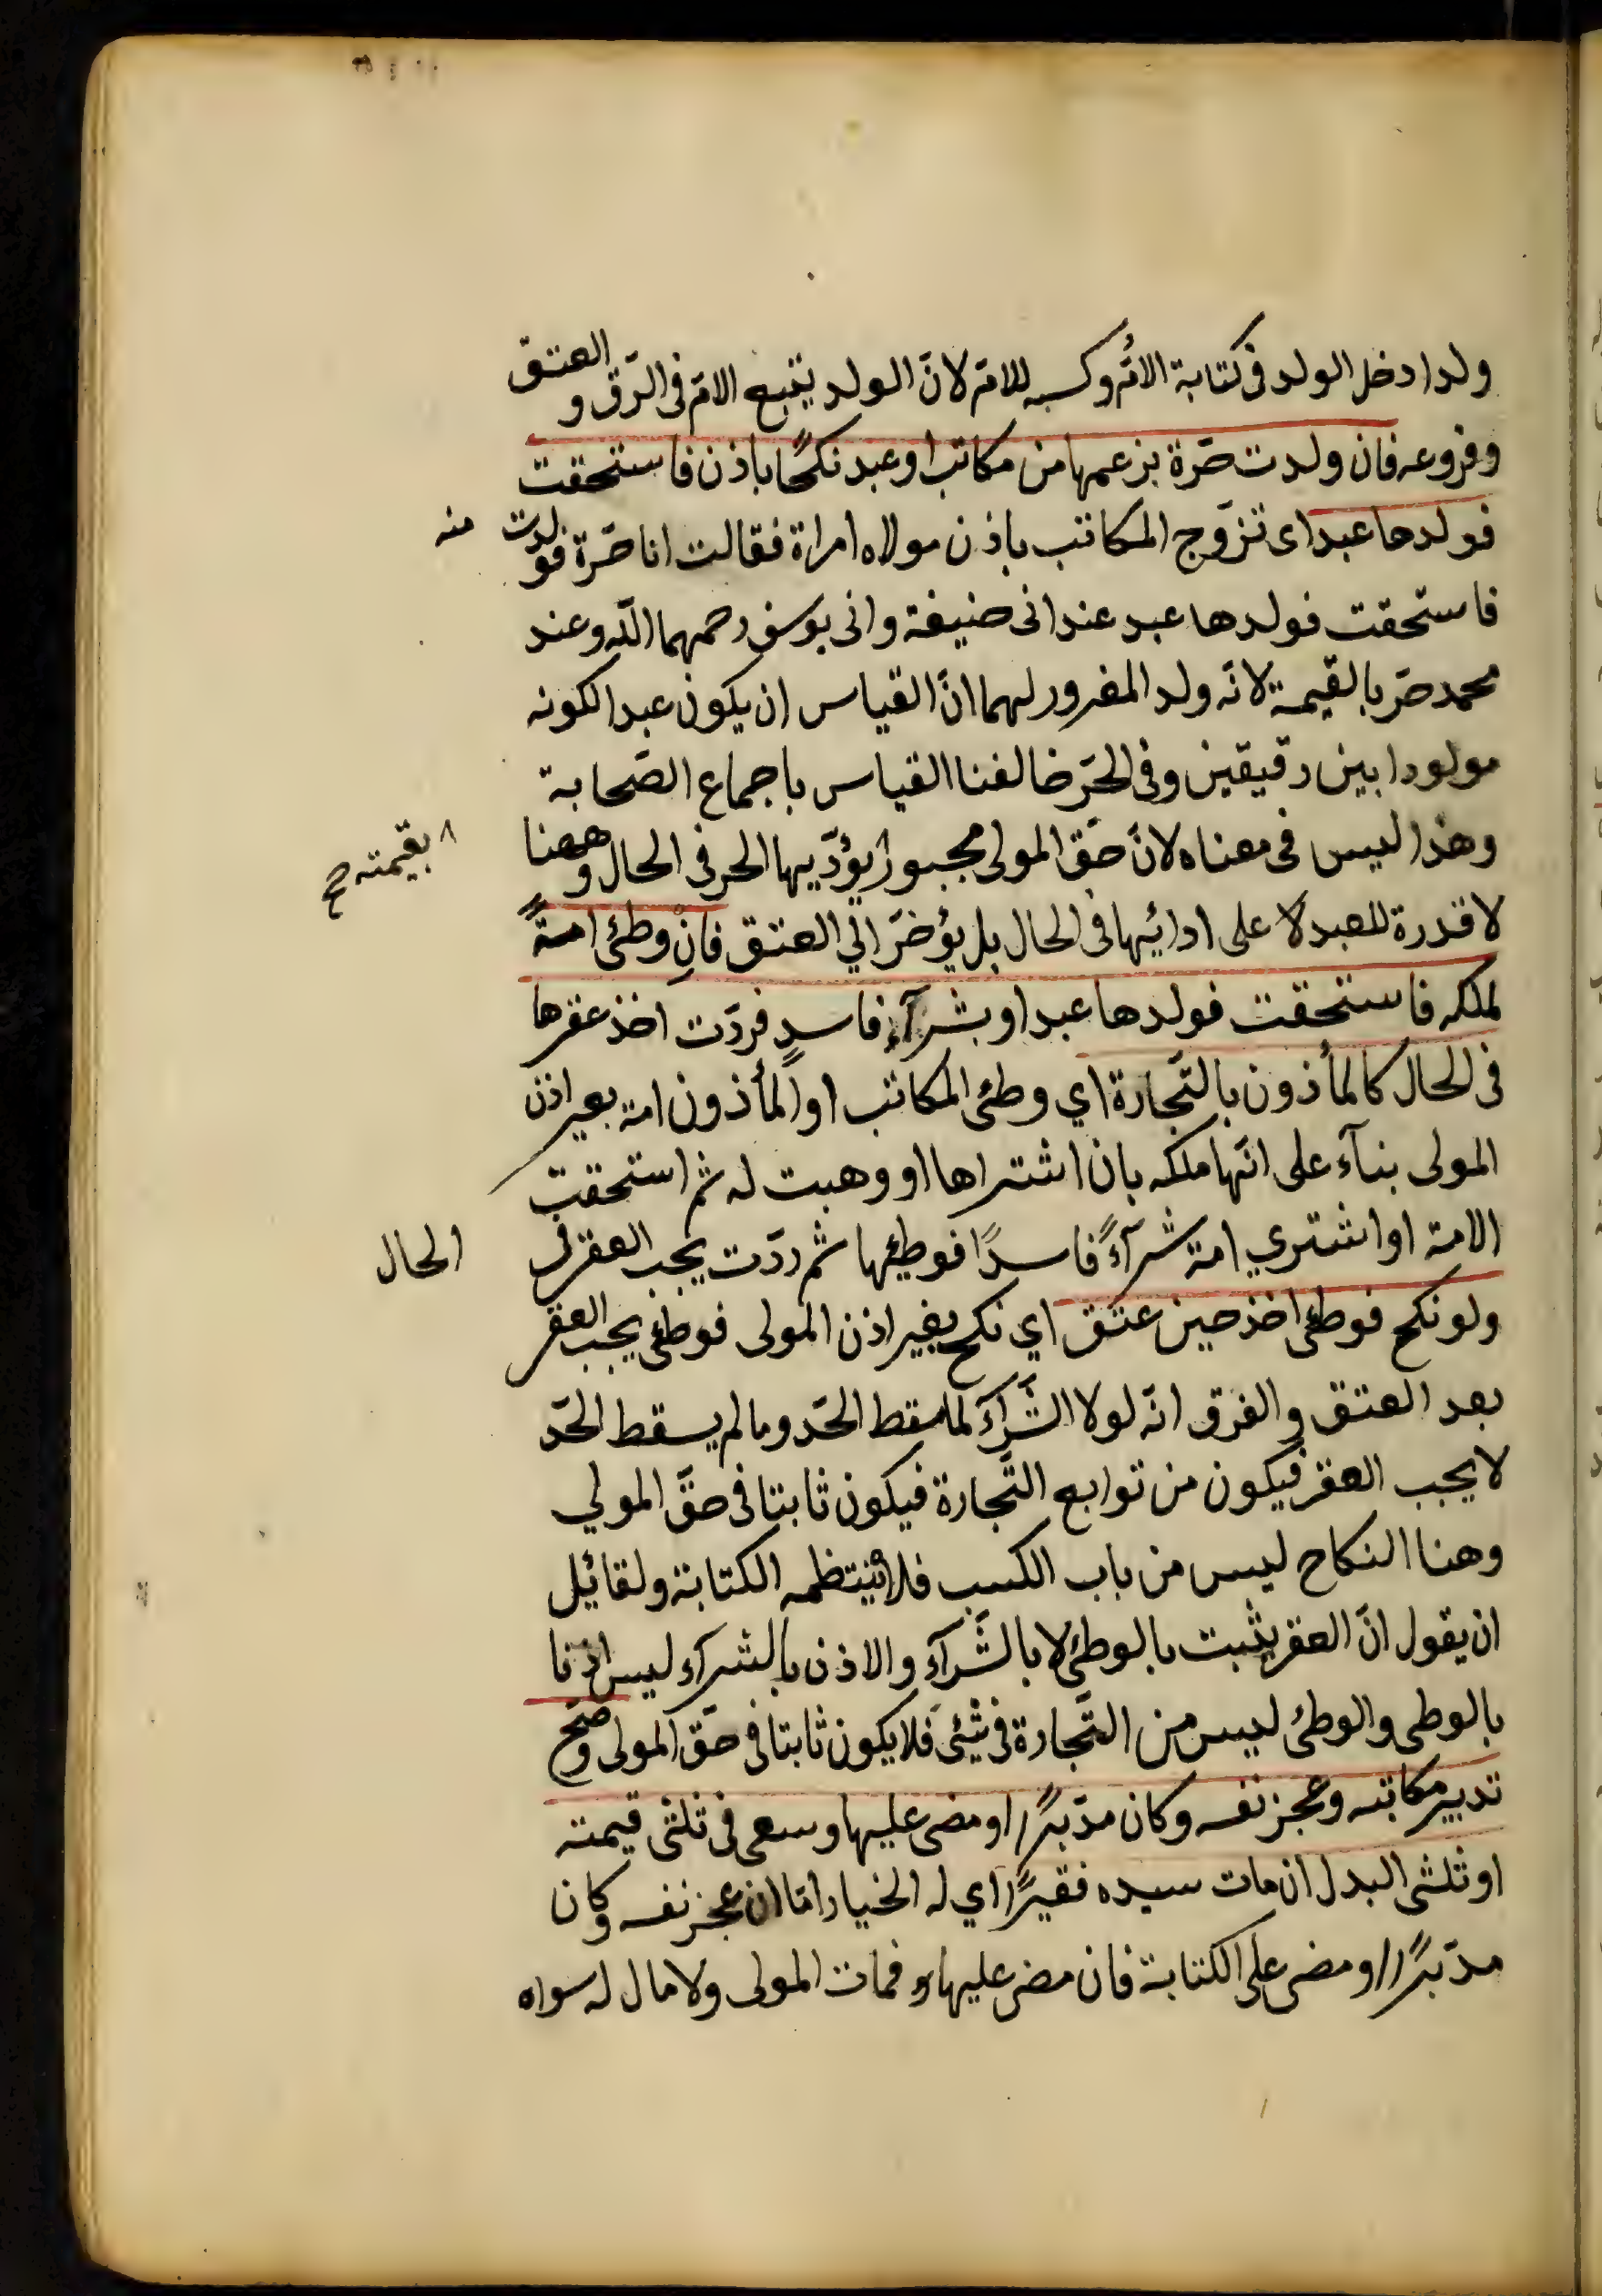 ولدا دخل الولد فى كتابة الامّ وكسبه للامّ لانّ الولد يتبع الامّ فى الرّق و العتق
وفروعه فان ولدت حرّة بزعمها من مكاتب او عبد نكحًا باذن فاستحقت
فولدها عبد اى تزوّج المكاتب باذن مولاه امراة فقالت انا حرّة فولدت منه
فاستحقت فولدها عبد عند ابى حنيفة وابى يوسف رحمهما اللّه وعند
محمد حرّ بالقيمة لانّه ولد المغرور لهما انّ القياس ان يكون عبدا لكونه
مولودا بين رقيقين وفى الحرّ خالفنا القياس باجماع الصّحابة
وهذا ليس فى معناه لانّ حقّ المولى مجبور يؤدّيها الحر فى الحال وههنا
بقيمته صح
لا قدرة للعبد لا على ادائيها فى الحال بل يؤخرّ الي العتق فان وطئ امةً
لملكه فاستحقت فولدها عبد او بشرآءٍ فاسدٍ فردّت اخذ عقرها
فى الحال كالمأذون بالتّجارة اي وطئ المكاتب او المأذون امة بغير اذن
المولى بنآء على انّها ملكه بان اشتراها او وهبت له ثم استحقت
الامة او اشتري امة شرآءً فاسدًا فوطئها ثم ردّت يجب العقر فى الحال
ولو نكح فوطئ اخذ حين عتق اي نكح بغير اذن المولى فوطئ يجب العقر
بعد العتق والفرق انّه لولا الشّرآء لما سقط الحدّ وما لم يسقط الحدّ
لا يجب العقر فيكون من توابع التّجارة فيكون ثابتا فى حقّ المولي
وهنا النكاح ليس من باب الكسب فلا ينتظمه الكتابة ولقائيل
ان يقول انّ العقر يثبت بالوطئ لا بالشّرآء والاذن بالشرآء ليس اذنا
بالوطى والوطئ ليس من التّجارة فى شئ فلا يكون ثابتا فى حقّ المولى وصحّ
تدبير مكاتبه وعجز نفسه وكان مدبّرًا او مضى عليها وسعى فى ثلثى قيمته
او ثلثى البدل ان مات سيده فقيرًا اي له الخيار امّا ان عجز نفسه وكان
مدبّرًا او مضى على الكتابة فان مضى عليها فمات المولى ولا مال له سواه